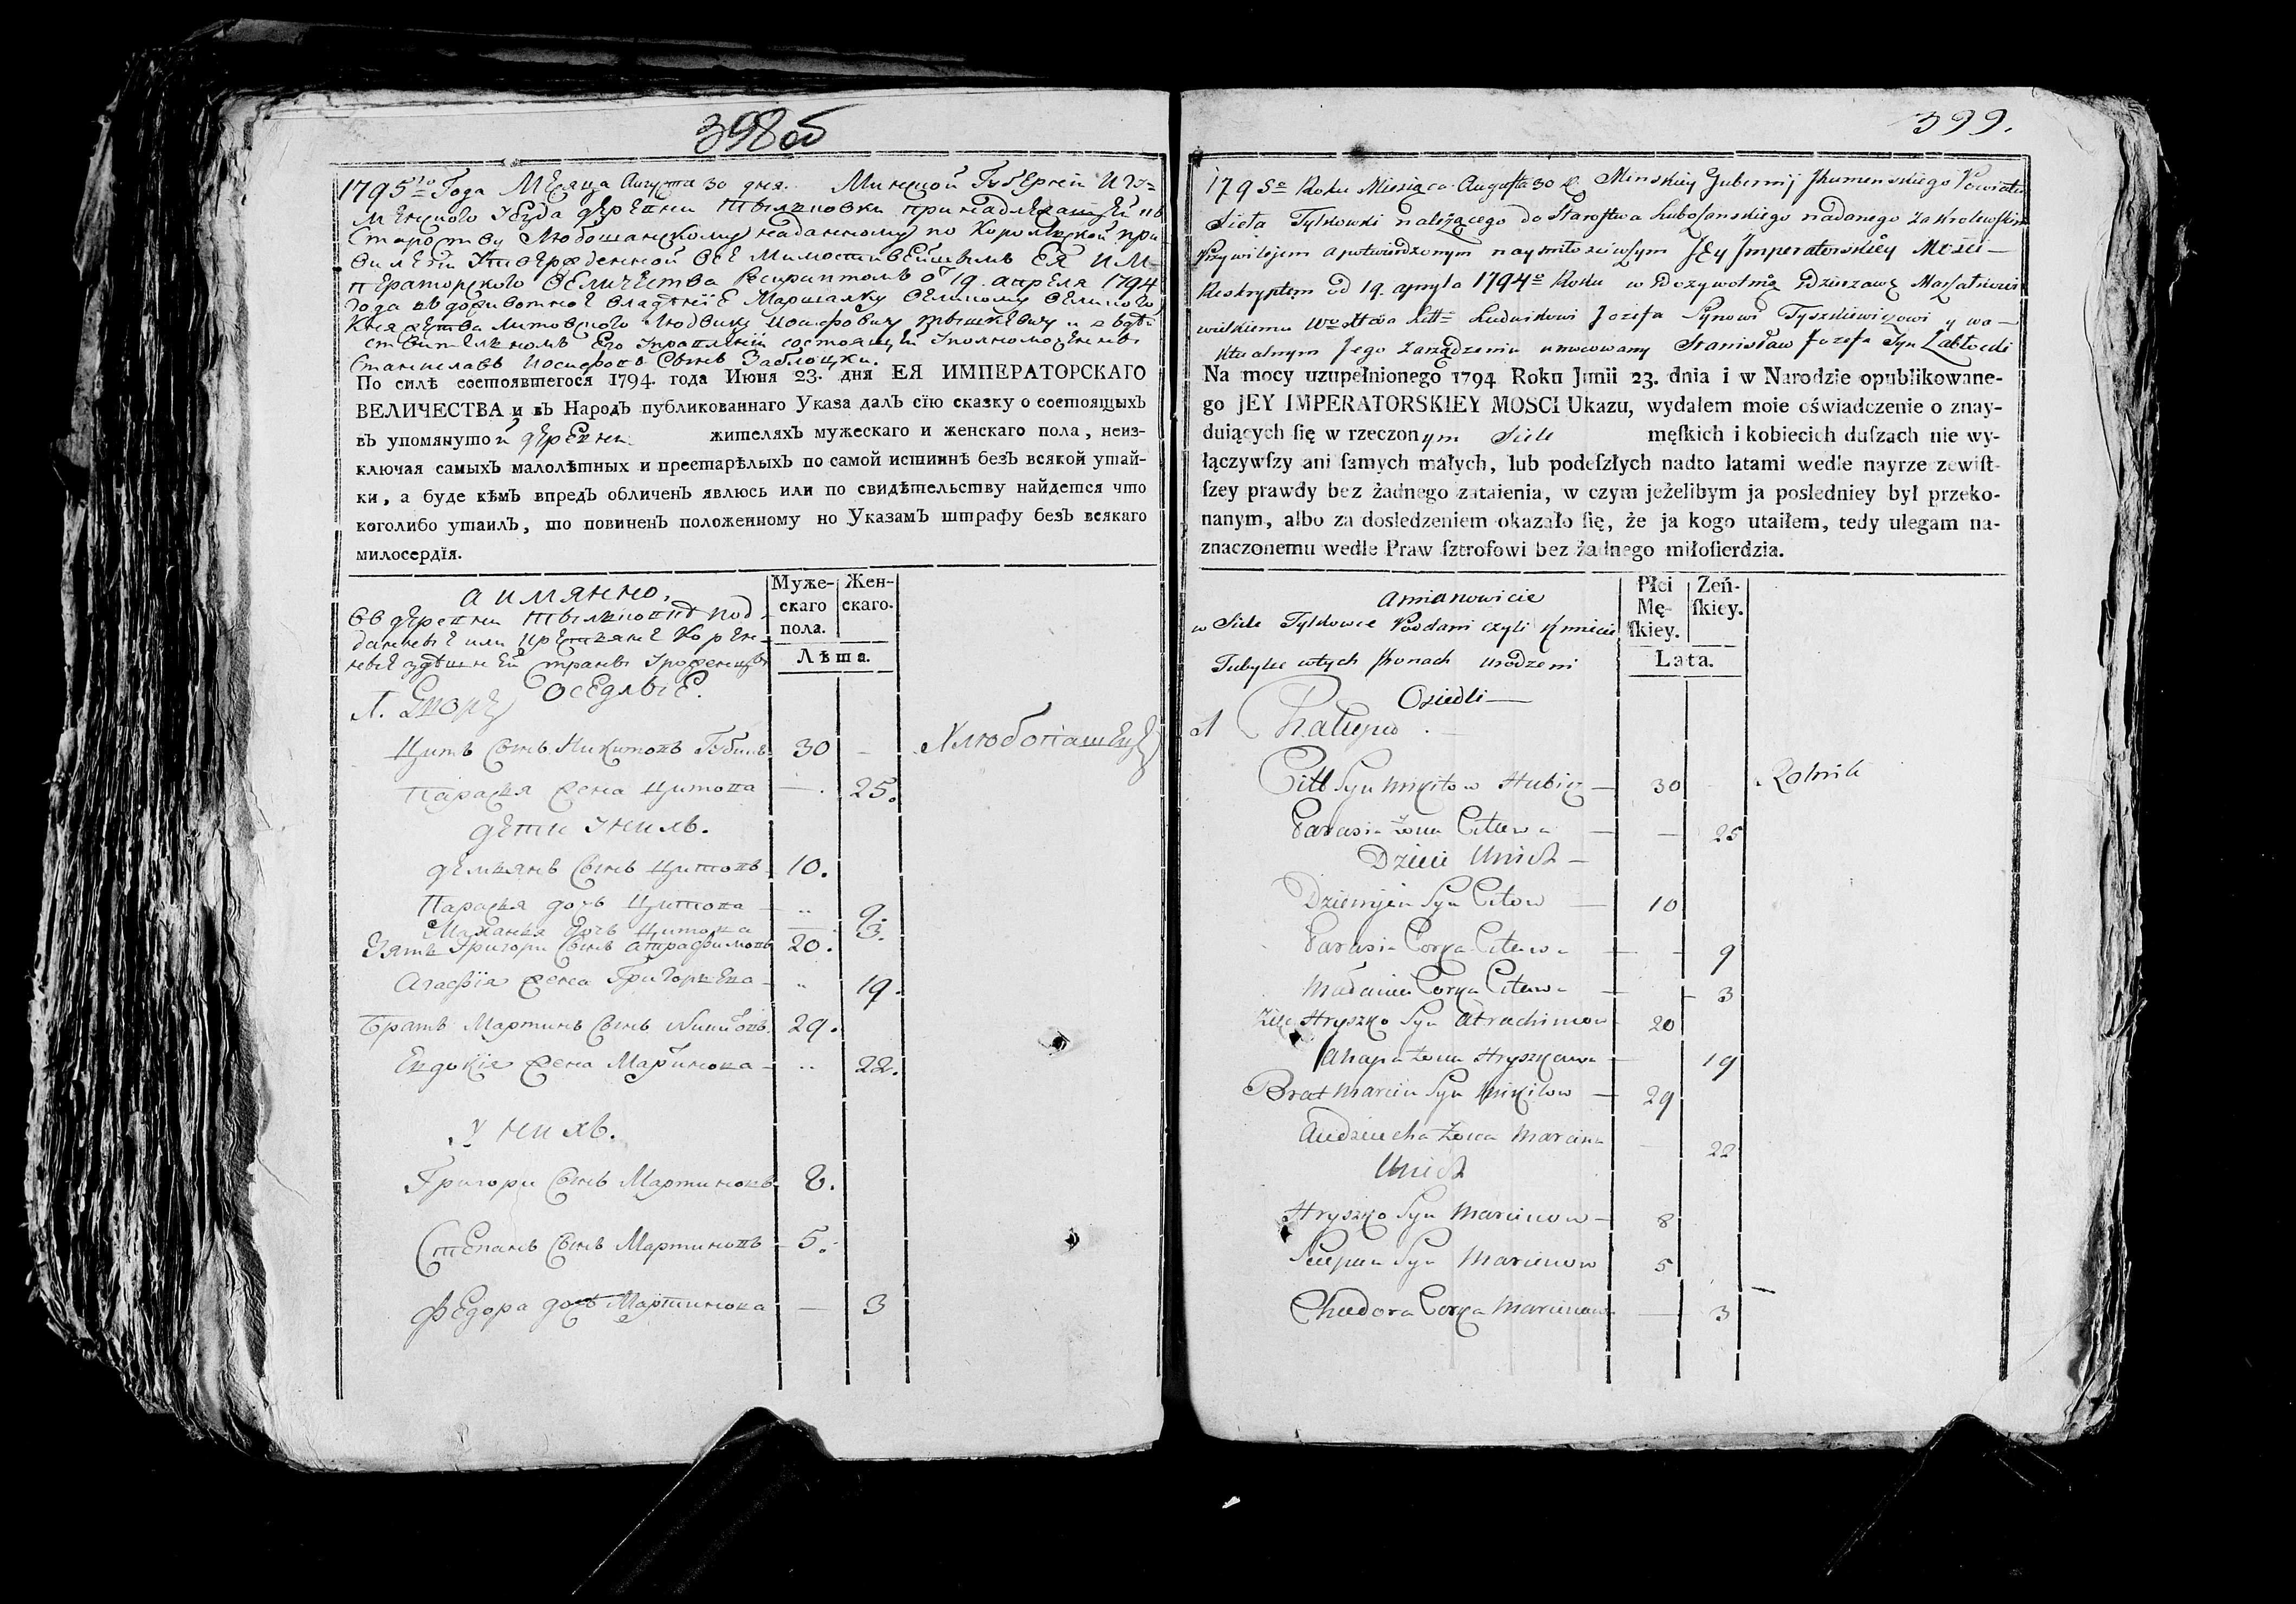 398об
1795го Года Месяца Августа 30 дня. Минской Губернии Игу-
менского уезда деревни Тылковки принадлежащей къ
Староству Любошанскому наданному по Королевской при-
вилегии утвержденной все Милостивейшымъ ЕЯ ИМ-
ператорского Величества Рескриптомъ от 19. апреля 1794
года въ доживотное владение Маршалку великому великого
Княжества литовского Людвику иосифовичу тышкевичу и
Его управлении состоящий уполномоченны
Станиславъ Иосифовъ Сынъ Заблоцки.
По силѣ состоявшегося 1794. года Июня 23. дня ЕЯ ИМПЕРАТОРСКАГО
ВЕЛИЧЕСТВА и въ Народъ публикованнаго Указа далъ сїю сказку о состоящыхъ
въ упомянутой деревни жителяхъ мужескаго и женскаго пола, неиз-
ключая самыхъ малолѣтныхъ и престарѣлыхъ по самой истиннѣ безъ всякой утай-
ки, а буде кѣмъ впредъ обличенъ явлюсь или по свидѣтельству найдется что
коголибо утаилъ, то повиненъ положенному по Указамъ штрафу безъ всякаго
милосердїя.
а имянно,
въ деревни тылковке под-
данные или крестяне корен-
ные здешней страны уроженцы
оседлые.
Муже-
скаго
пола.
Жен-
скаго.
Лѣта.
Цитъ Сынъ Никитовъ Губичъ 30 – Хлебопашецъ
Парася жена Цитова — 25.
дети у нихъ.
демянъ Сынъ Цитовъ 10.
Парася дочь Цитова — 9.
Маланя дочь Цитова — 3.
Зять Григори Сынъ Атрафимовъ 20.
Агафия жена Григорева — 19.
Братъ Мартинъ Сынъ Никитовъ 29.
Евдокия жена Мартинова — 22.
у нихъ.
Григори Сынъ Мартиновъ 8.
Степанъ Сынъ Мартиновъ 5.
Федора дочь Мартинова — 3
399.
1795o Roku Miesiąca Augusta 30 d. Minskiey Gubernij Jhumenskiego Powiatu
Sieła Tylkowki należącego do Starostwa Lubosanskiego nadanego za Krolewskim
Przywilejem a potwierdzonym naymiłosciwszym JEy Jmperatorskiey Mosci —
Reskryptem od 19. apryla 1794o Roku w Dożywotnią Dzierzawę Marszałkowi
wielkiemu Wo Xtwa Litto Ludwikowi Jozefa Synowi Tyszkiewiczowi y wa—
ktualnym Jego Zarządzeniu umocowany Stanisław Jozefa Syn Zabłocki
Na mocy uzupełnionego 1794 Roku Junii 23. dnia i w Narodzie opublikowane-
go JEY IMPERATORSKIEY MOSCI Ukazu, wydałem moie oświadczenie o znay-
duiących ſię w rzeczonym Siele męſkich i kobiecich duſzach nie wy-
łączywſzy ani ſamych małych, lub podeſzłych nadto latami wedle nayrzezewiſt-
ſzey prawdy bez żadnego zataienia, w czym jeżelibym ja posledniey był przeko-
nanym, albo za dosledzeniem okazało ſię, że ja kogo utaiłem, tedy ulegam na-
znaczonemu wedle Praw ſztrofowi bez żadnego miłoſierdzia.
a mianowicie
w Siele Tylkowce Poddani czyli Kmiecie
Tubylce w tych stronach urodzeni
Osiedli —
Płci
Mę-
ſkiey.
Zeń-
ſkiey.
Lata.
1 Chalupa
Citt Syn Mikitow Hubicz — 30 Rolnik
Parasia Zona Citowa — 25
Dzieci U nich —
Dziemjan Syn Citow — 10
Parasia Corka Citowa — 9
Małania Corka Citowa — 3
Zięć Hryszko Syn Atrachimow 20
Ahapa Zona Hryszkowa — 19
Brat Marcin Syn Mikitow — 29
Audziucha Zona Marcina — 22
U nich
Hryszko Syn Marcinow — 8
Sciepan Syn Marcinow 5
Chwedora Corka Marcinowa — 3